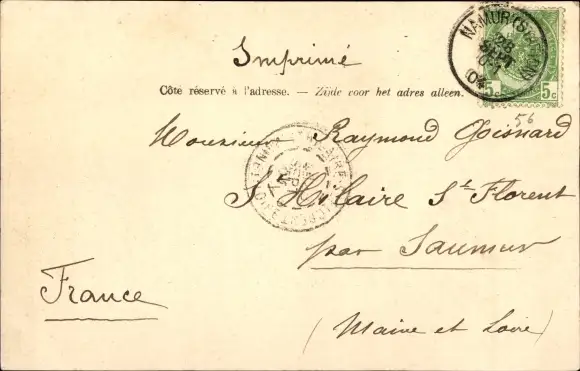 Imprimé
NAMUR (STATION)
5c 5c
Côte réservé à l'adresse. — Zijde voor het adres alleen.
56
Monsieur Raymond Goisnard
St Hilaire St Florent
par Saumur
France
(Maine et Loire)